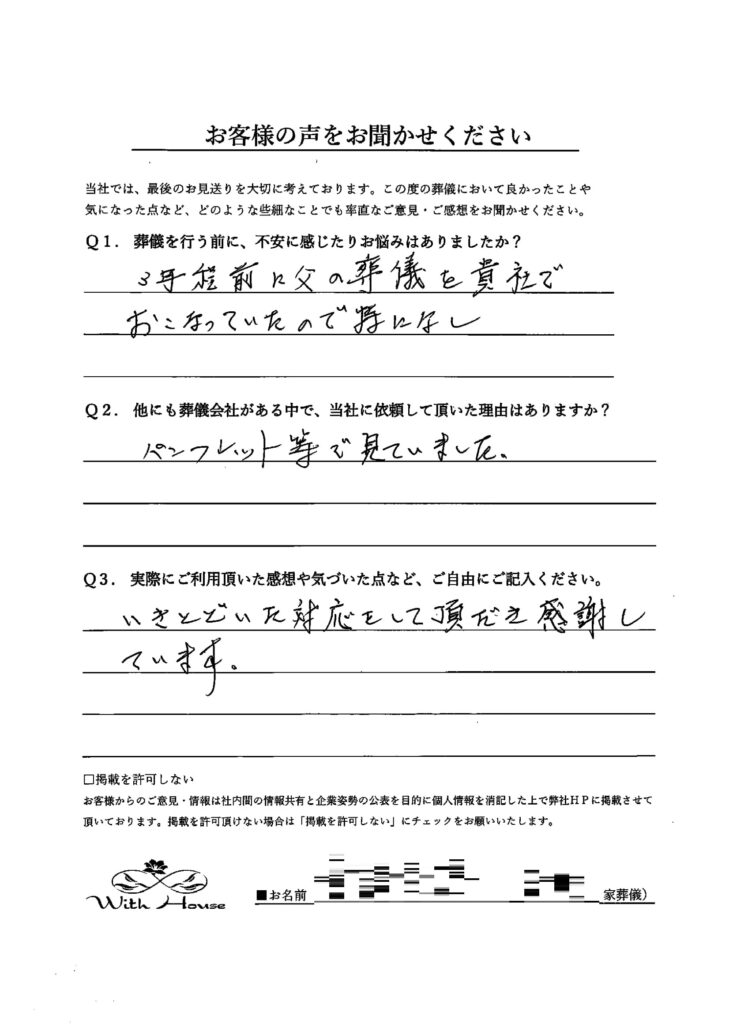 お客様の声をお聞かせください
当社では、最後のお見送りを大切に考えております。この度の葬儀において良かったことや
気になった点など、どのような些細なことでも率直なご意見・ご感想をお聞かせください。
Q1. 葬儀を行う前に、不安に感じたりお悩みはありましたか？
3年程前に父の葬儀を貴社で
おこなっていたので特になし
Q2. 他にも葬儀会社がある中で、当社に依頼して頂いた理由はありますか？
パンフレット等で見ていました。
Q3. 実際にご利用頂いた感想や気づいた点など、ご自由にご記入ください。
いきとどいた対応をして頂だき感謝し
ています。
□掲載を許可しない
お客様からのご意見・情報は社内間の情報共有と企業姿勢の公表を目的に個人情報を消記した上で弊社HPに掲載させて
頂いております。掲載を許可頂けない場合は「掲載を許可しない」にチェックをお願いいたします。
With House
■お名前 家葬儀）